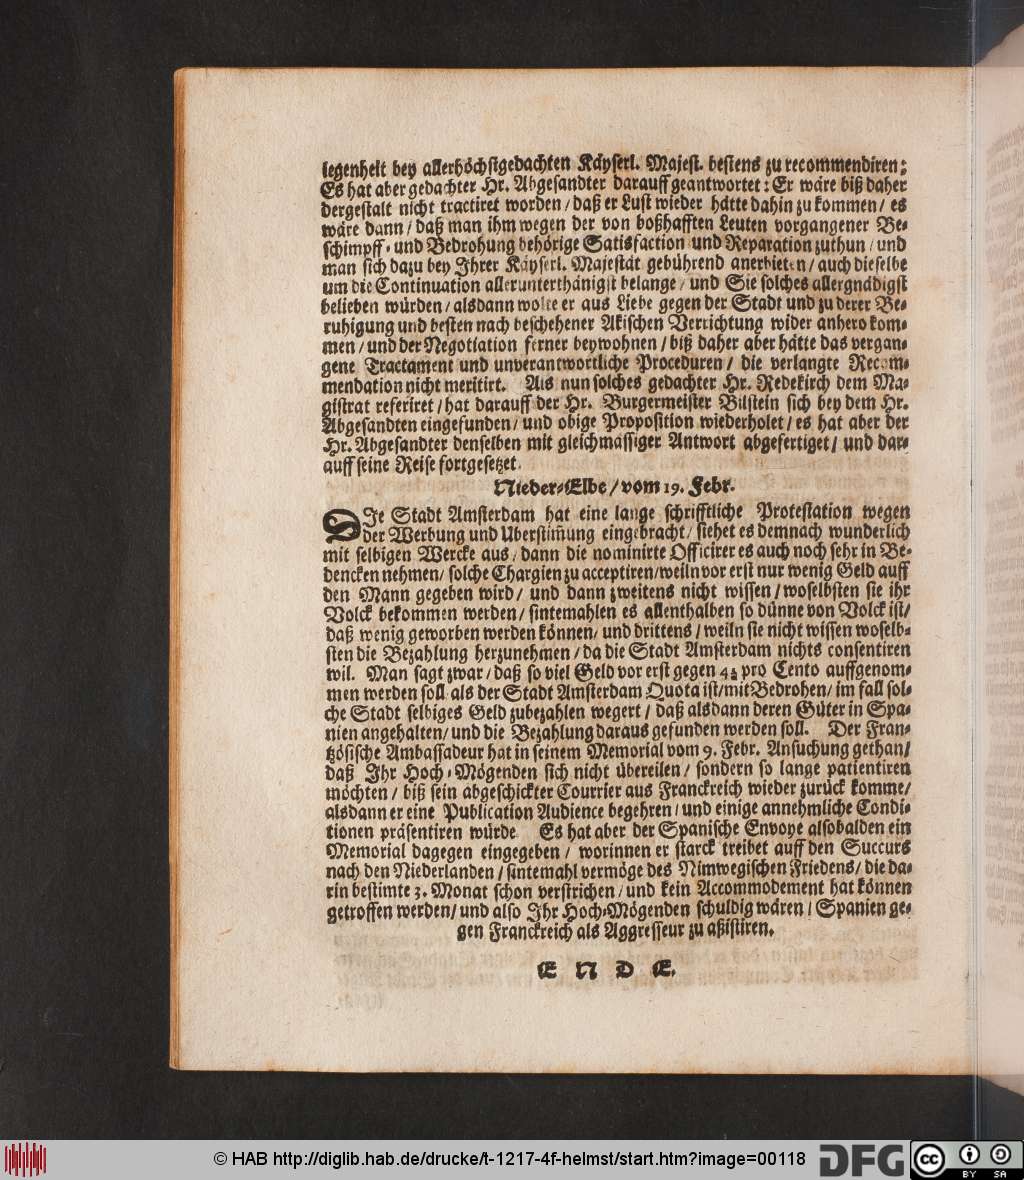 legenheit bey allerhöchstgedachten Käyserl. Majest. bestens zu recommendiren:
Es hat aber gedachter Hr. Abgesandter darauff geantwortet: Er wäre biß daher
dergestalt nicht tractiret worden / daß er Lust wieder hätte dahin zu kommen / es
wäre dann / daß man ihm wegen der von boßhafften Leuten vorgangener Be-
schimpff- und Bedrohung behörige Satisfaction und Reparation zuthun / und
man sich dazu bey Ihrer Käyserl. Majestät gebührend anerbieten / auch dieselbe
um die Continuation allerunterthänigst belange / und Sie solches allergnädigst
belieben würden / alsdann wolte er aus Liebe gegen der Stadt und zu derer Be-
ruhigung und besten nach beschehener Akischen Verrichtung wider anhero kom-
men / und der Negotiation ferner beywohnen / biß daher aber hätte das vergan-
gene Tractament und unverantwortliche Proceduren / die verlangte Recom-
mendation nicht meritirt. Als nun solches gedachter Hr. Redekirch dem Ma-
gistrat referiret / hat darauff der Hr. Burgermeister Bilstein sich bey dem Hr.
Abgesandten eingefunden / und obige Proposition wiederholet / es hat aber der
Hr. Abgesandter denselben mit gleichmässiger Antwort abgefertiget / und dar-
auff seine Reise fortgesetzet.
Nieder-Elbe / vom 19. Febr.
DIe Stadt Amsterdam hat eine lange schrifftliche Protestation wegen
der Werbung und Uberstim̃ung eingebracht / siehet es demnach wunderlich
mit selbigen Wercke aus / dann die nominirte Officirer es auch noch sehr in Be-
dencken nehmen / solche Chargien zu acceptiren / weiln vor erst nur wenig Geld auff
den Mann gegeben wird / und dann zweitens nicht wissen / woselbsten sie ihr
Volck bekommen werden / sintemahlen es allenthalben so dünne von Volck ist /
daß wenig geworben werden können / und drittens / weiln sie nicht wissen woselb-
sten die Bezahlung herzunehmen / da die Stadt Amsterdam nichts consentiren
wil. Man sagt zwar / daß so viel Geld vor erst gegen 4½ pro Cento auffgenom-
men werden soll als der Stadt Amsterdam Quota ist / mit Bedrohen / im fall sol-
che Stadt selbiges Geld zubezahlen wegert / daß alsdann deren Güter in Spa-
nien angehalten / und die Bezahlung daraus gefunden werden soll. Der Fran-
tzösische Ambassadeur hat in seinem Memorial vom 9. Febr. Ansuchung gethan /
daß Ihr Hoch-Mögenden sich nicht übereilen / sondern so lange patientiren
möchten / biß sein abgeschickter Courrier aus Franckreich wieder zurück komme /
alsdann er eine Publication Audience begehren / und einige annehmliche Condi-
tionen präsentiren würde Es hat aber der Spanische Envoye alsobalden ein
Memorial dagegen eingegeben / worinnen er starck treibet auff den Succurs
nach den Niederlanden / sintemahl vermöge des Nimwegischen Friedens / die da-
rin bestimte 3. Monat schon verstrichen / und kein Accommodement hat können
getroffen werden / und also Ihr Hoch-Mögenden schuldig wären / Spanien ge-
gen Franckreich als Aggresseur zu aßistiren.
E N D E.
© HAB http://diglib.hab.de/drucke/t-1217-4f-helmst/start.htm?image=00118
DFG
cc BY SA